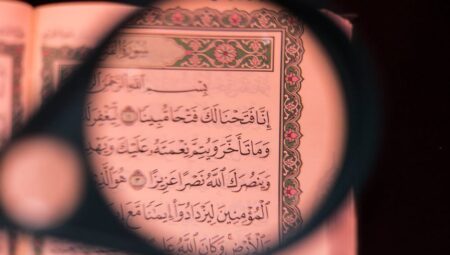 سُورَةُ
بِسْمِ اللَّهِ الرَّحْمَٰنِ
إِنَّا فَتَحْنَا لَكَ فَتْحًا مُّبِينًا ١ لِّيَغْفِرَ
وَمَا تَأَخَّرَ وَيُتِمَّ نِعْمَتَهُۥ عَلَيْكَ
وَيَنصُرَكَ ٱللَّهُ نَصْرًا عَزِيزًا ٣ هُوَ
ٱلْمُؤْمِنِينَ لِيَزْدَادُوٓا۟ إِيمَٰنًا مَّعَ
وَٱلْأَرْضِ وَكَانَ ٱللَّهُ